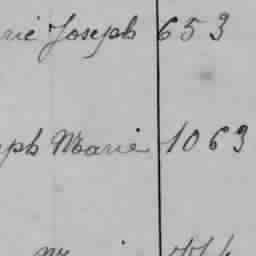 rie Joseph 653
eph Marie 1063